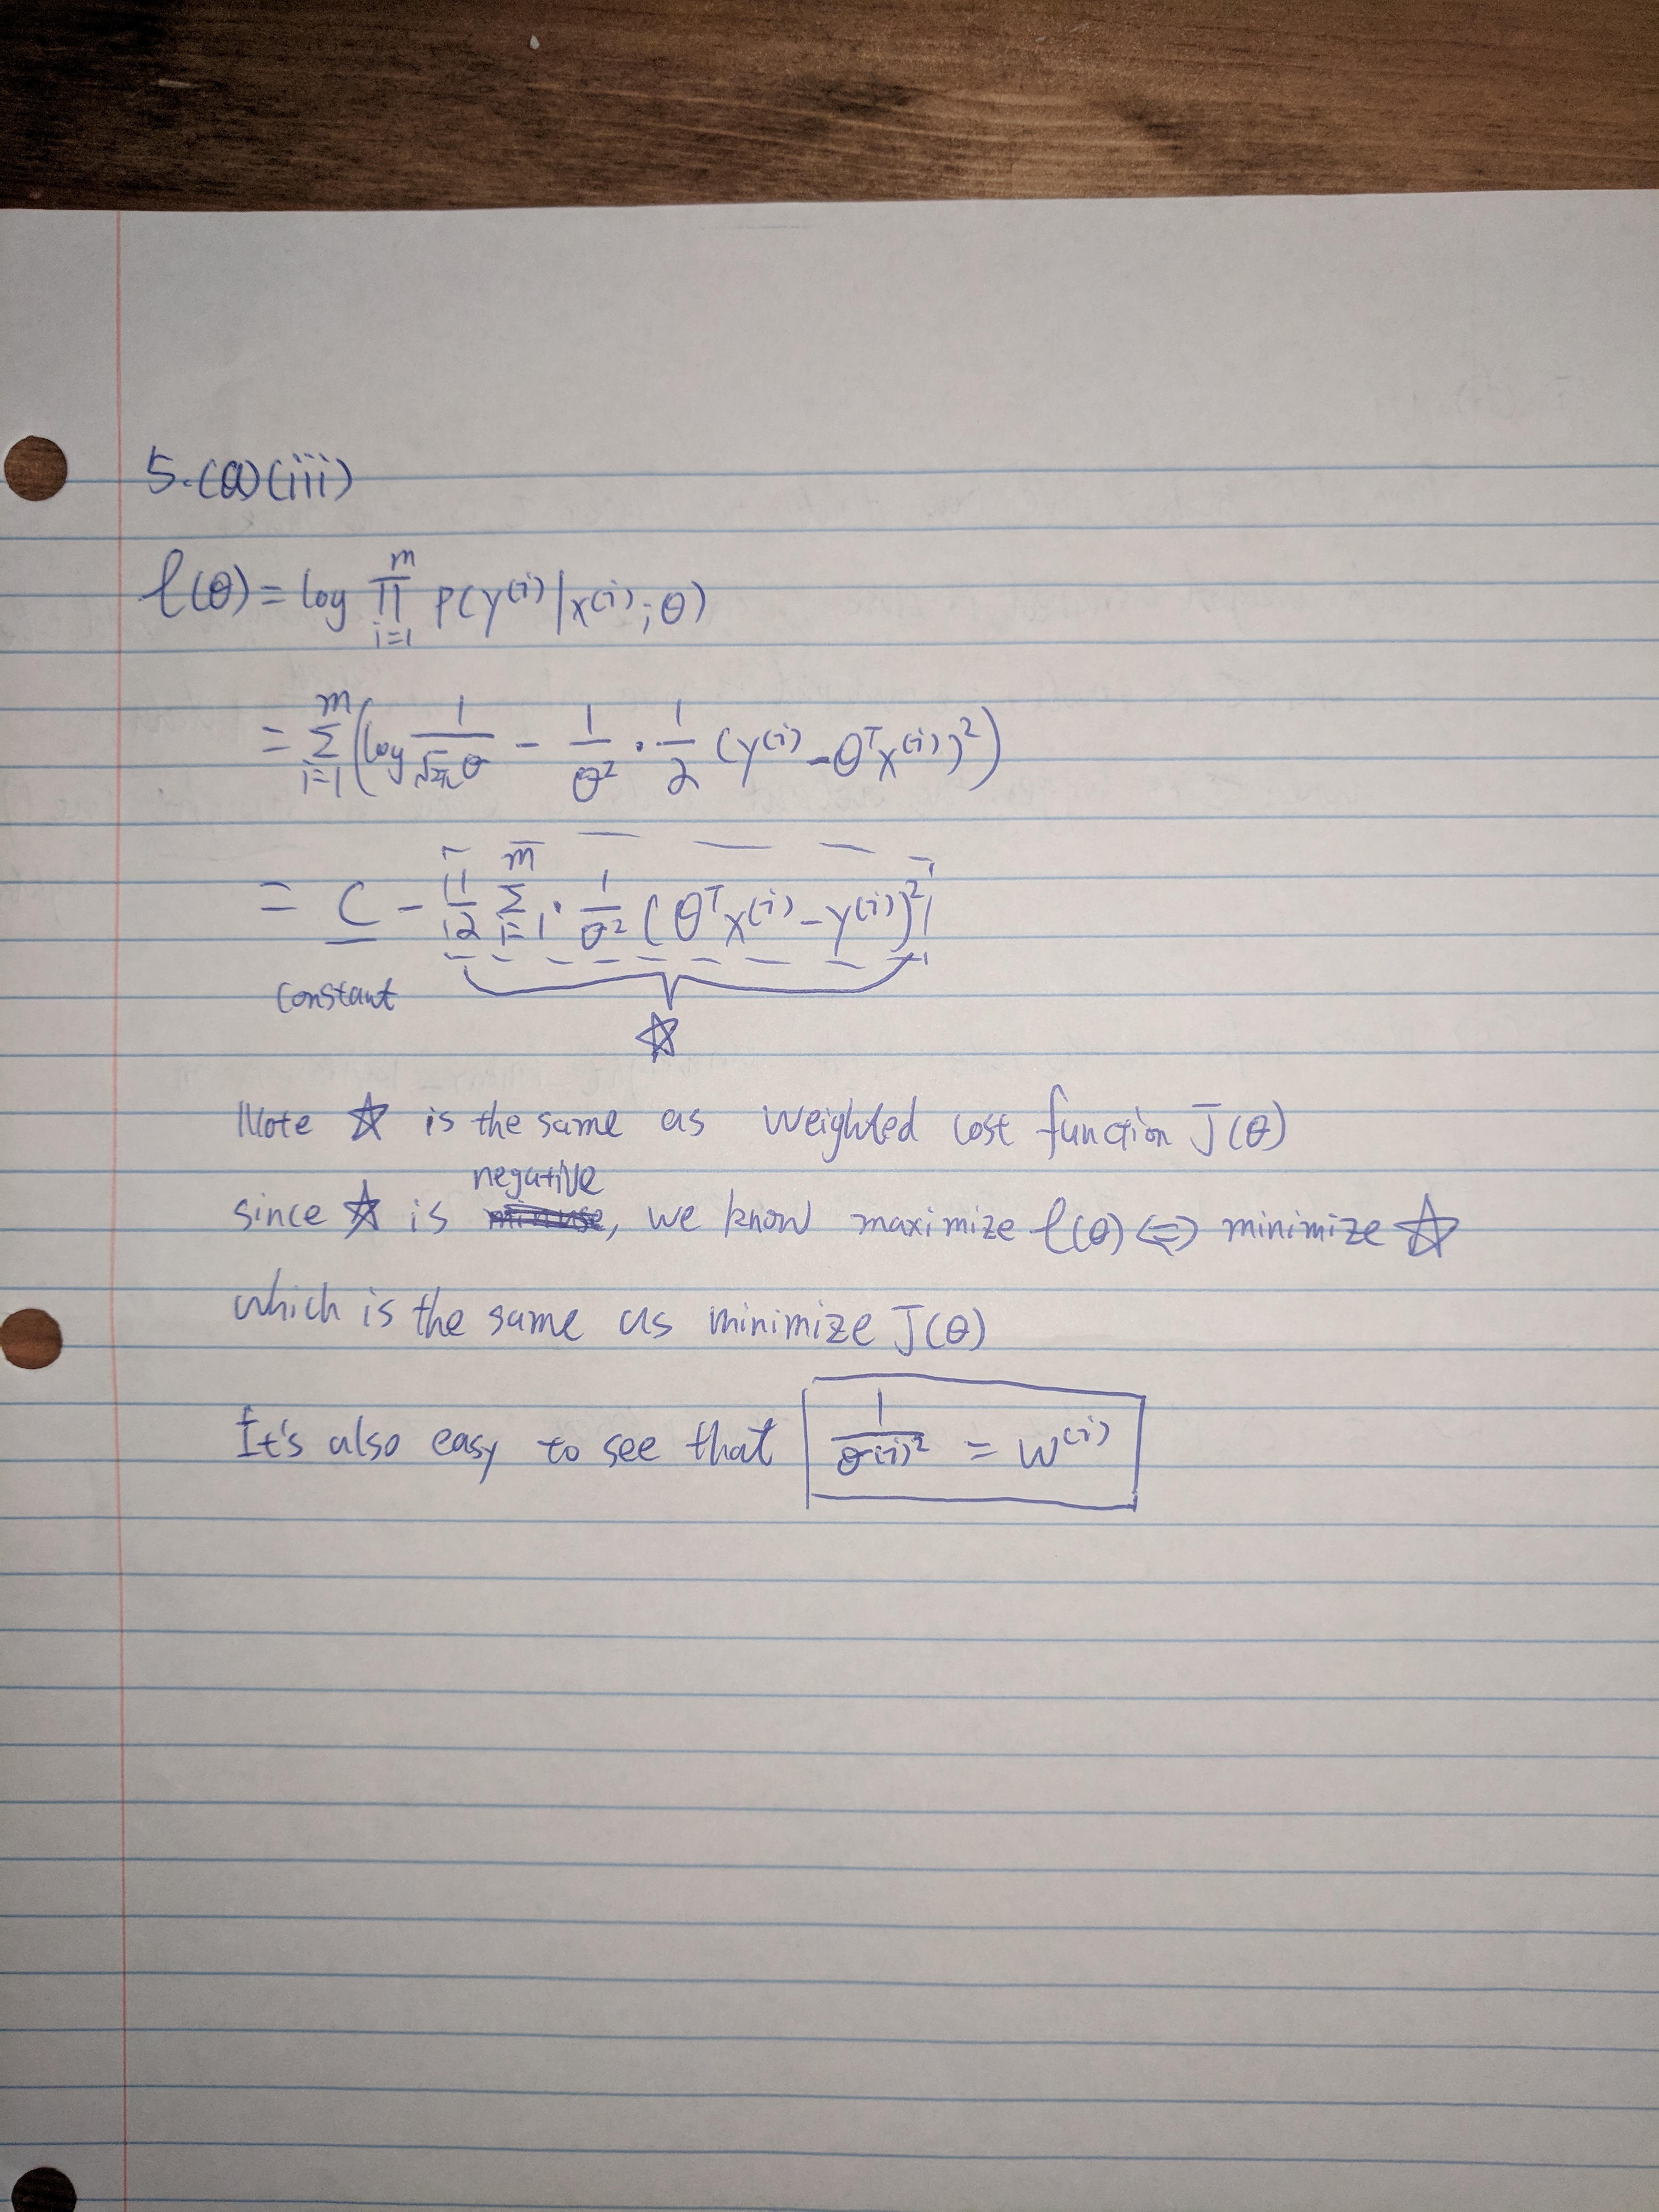 5.(a)(iii)
ℓ(θ) = log ∏_{i=1}^{m} P(y^{(i)} | x^{(i)}; θ)
= Σ_{i=1}^{m} (log 1/(√2π σ) - 1/σ² · 1/2 (y^{(i)} - θ^T x^{(i)})²)
= C - 1/2 Σ_{i=1}^{m} · 1/σ² (θ^T x^{(i)} - y^{(i)})²
constant
☆
Note ☆ is the same as weighted cost function J(θ)
since ☆ is negative, we know maximize ℓ(θ) ⇔ minimize ☆
which is the same as minimize J(θ)
It's also easy to see that 1/σ^{(i)2} = w^{(i)}